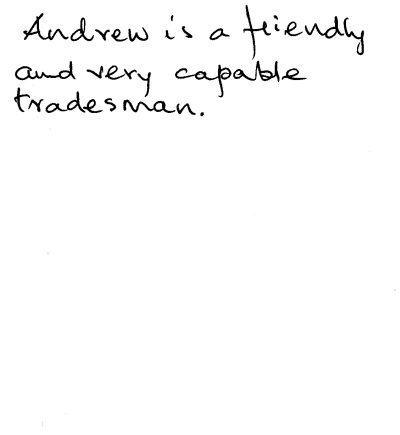 Andrew is a friendly
and very capable
tradesman.